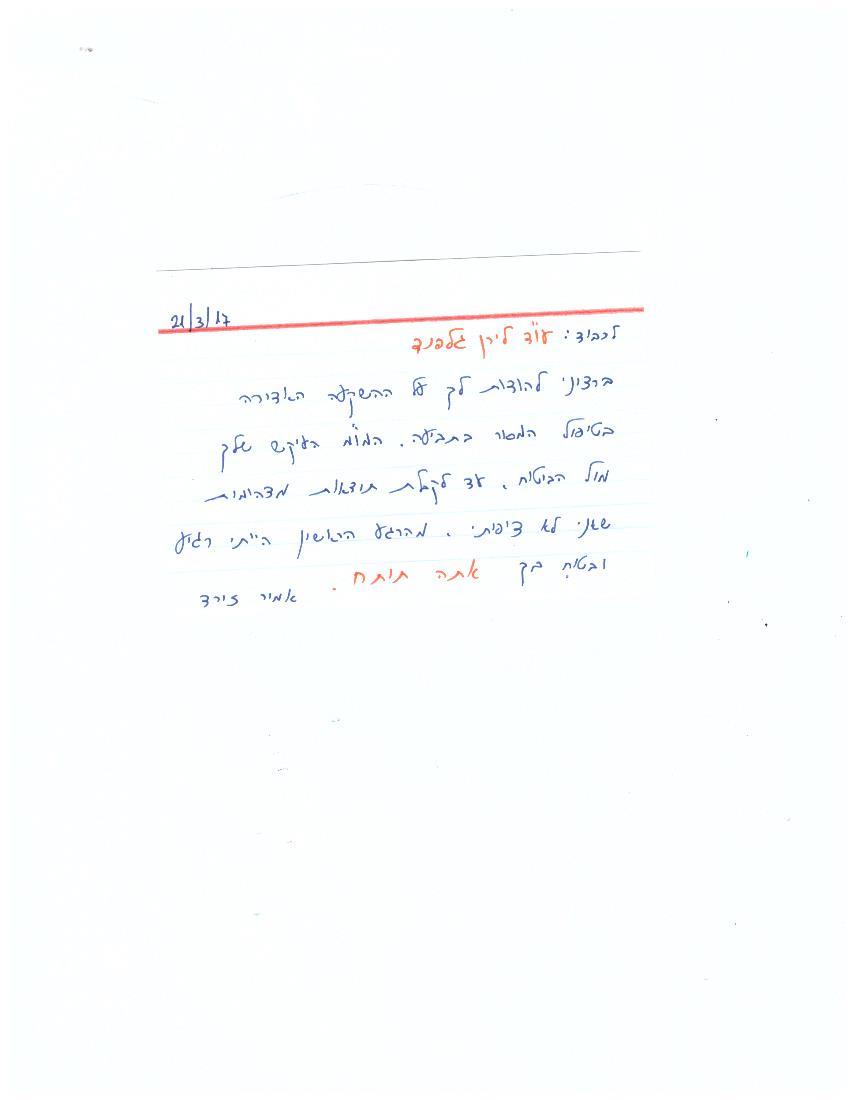 21/3/17
לכבוד: עו"ד לירן גלפנד
ברצוני להודות לך על ההשקעה האדירה
בטיפול המסור בתביעה. המו"מ העיקש שלך
מול הביטוח, עד לקבלת תוצאות מדהימות
שאני לא ציפיתי. מהרגע הראשון הייתי רגוע
ובטוח בך אתה תותח.
אמיר